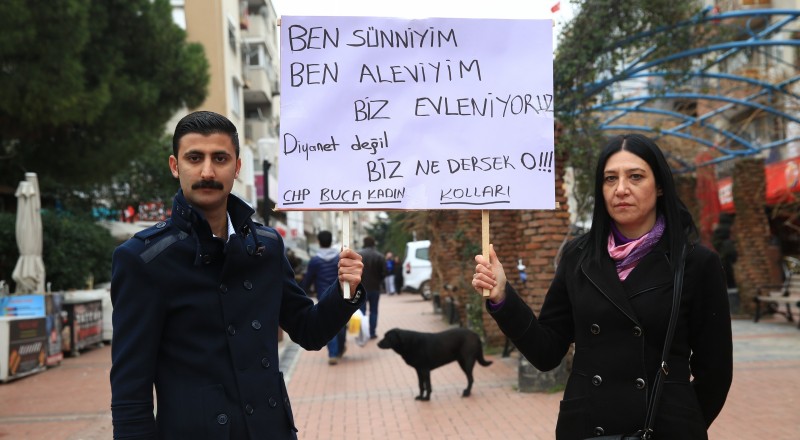 BEN SÜNNİYİM
BEN ALEVİYİM
BİZ EVLENİYORUZ
Diyanet değil
BİZ NE DERSEK O!!!
CHP BUCA KADIN KOLLARI